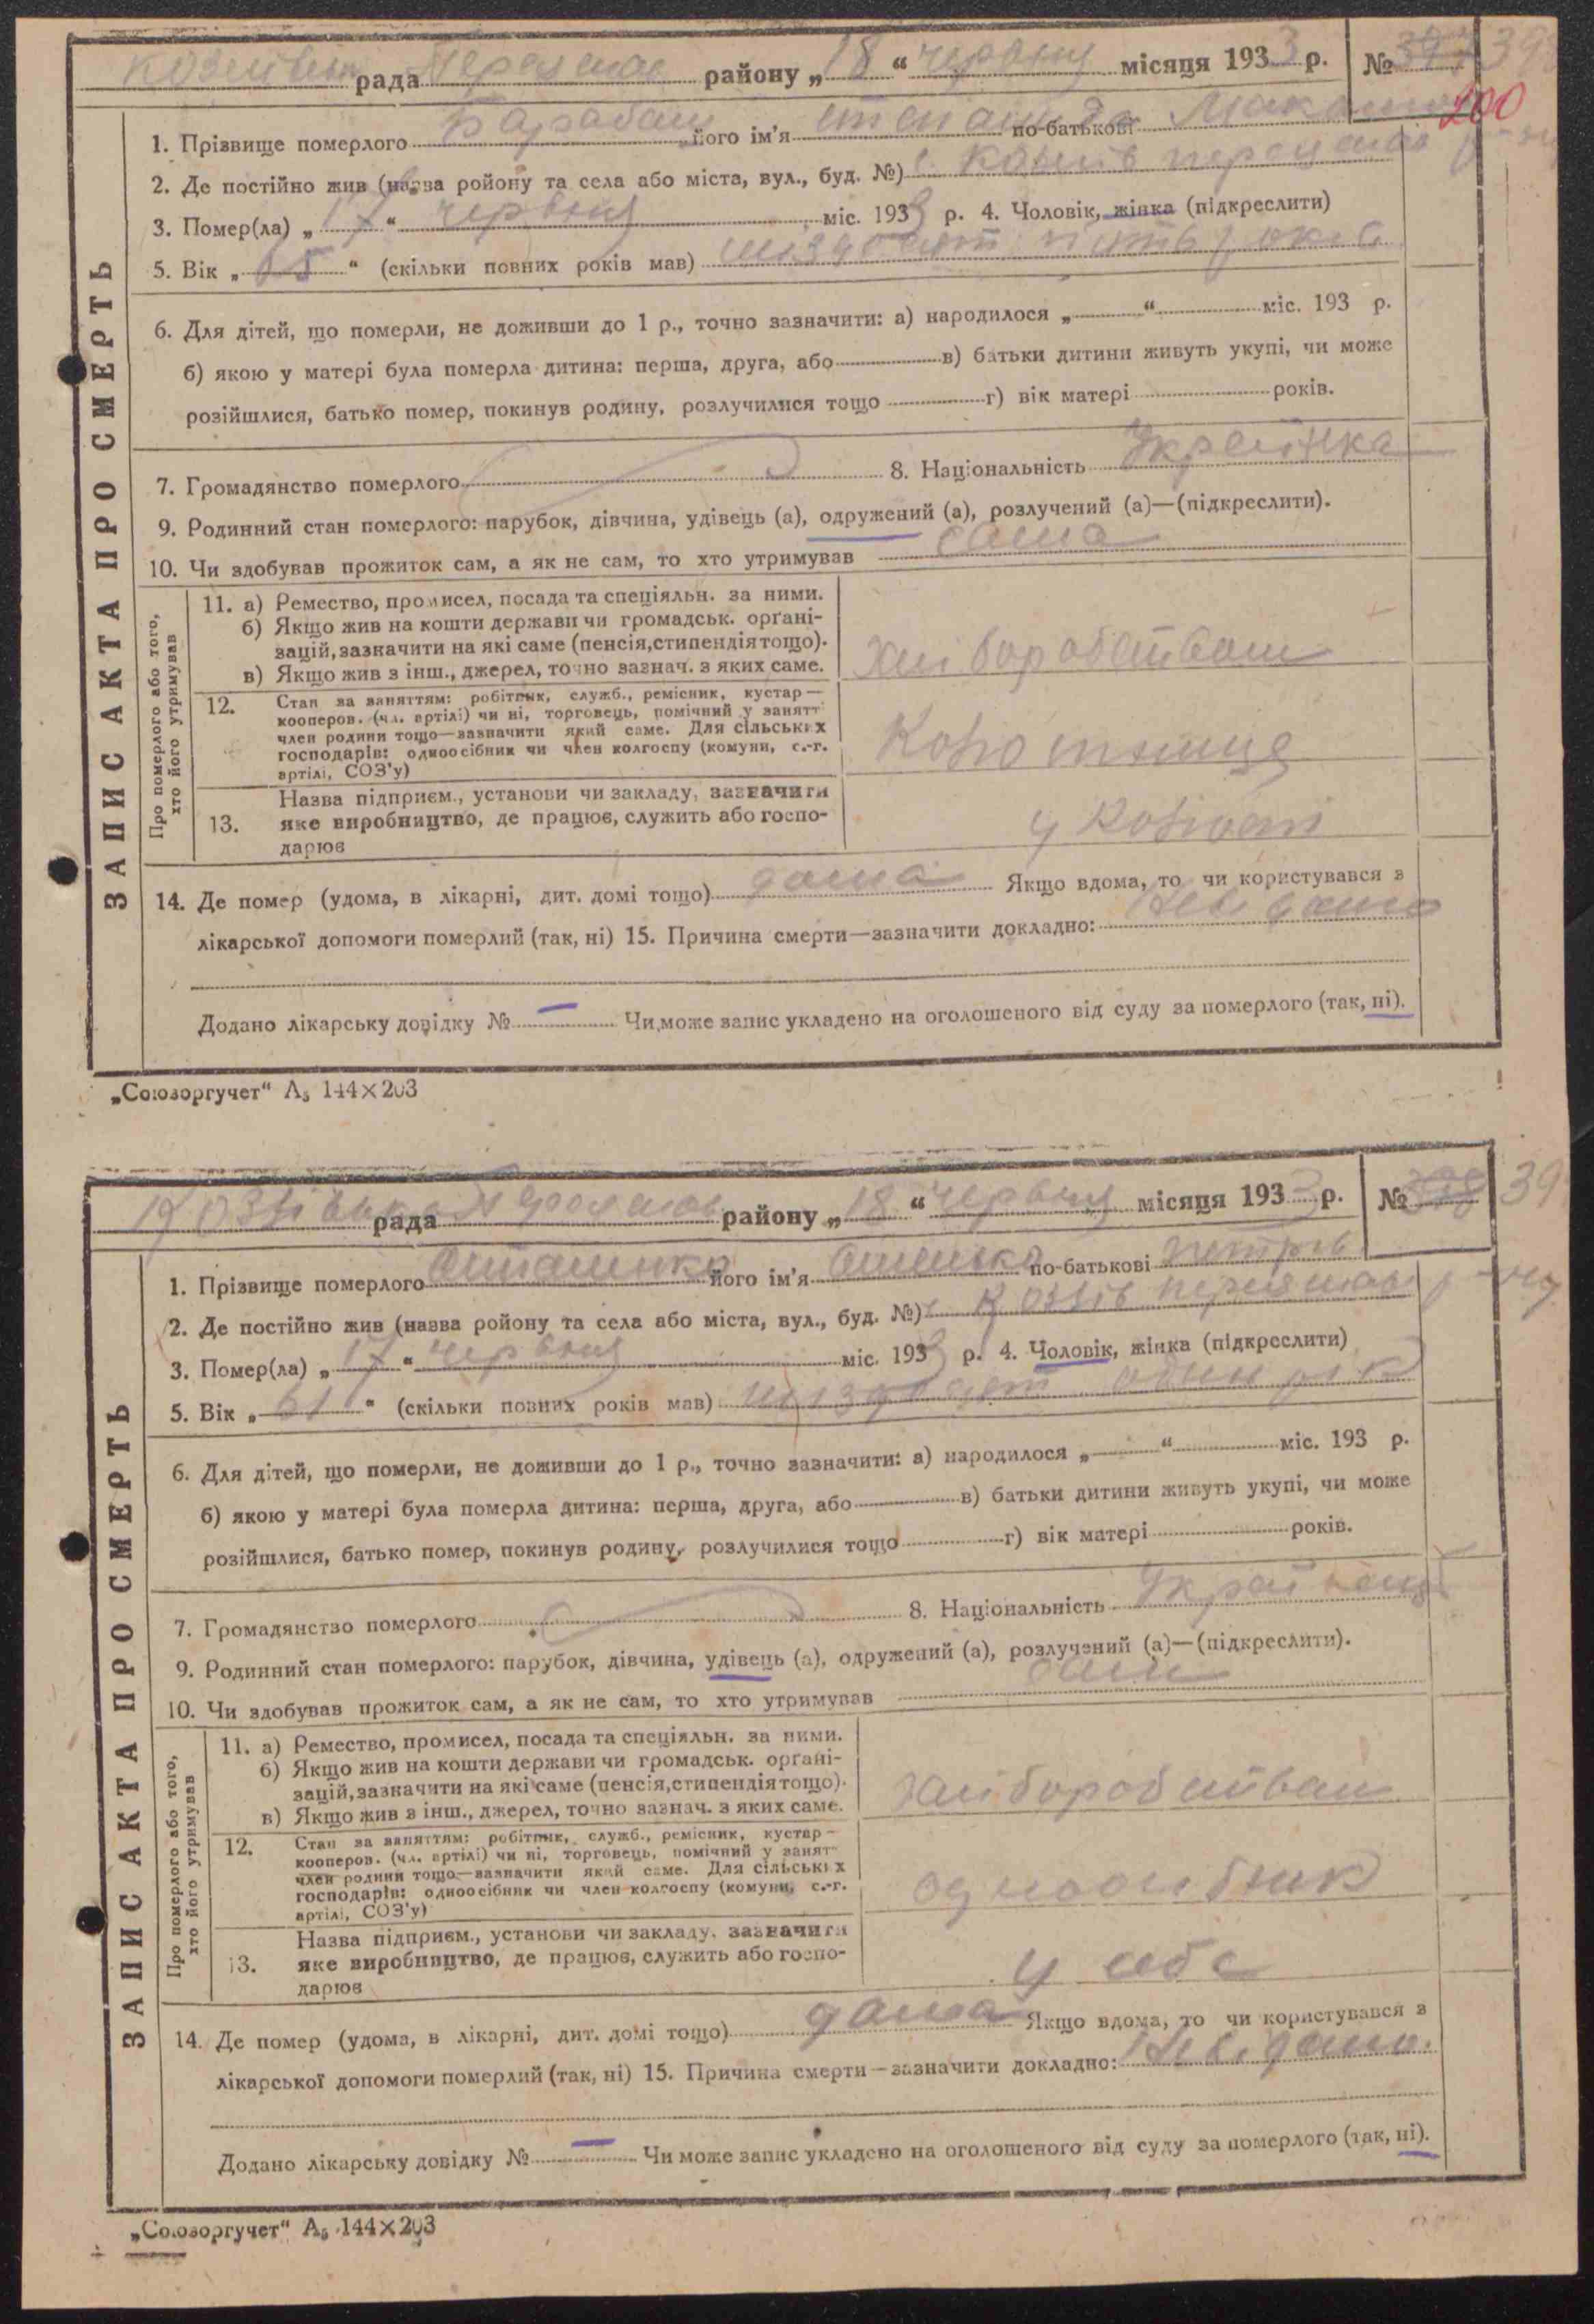 рада району „ 18 “ червня місяця 1933 р. №
200
ЗАПИС АКТА ПРО СМЕРТЬ
1. Прізвище померлого Барабаш його ім'я по-батькові
2. Де постійно жив (назва ройону та села або міста, вул., буд. №)
3. Помер(ла) „ 17 “ червня міс. 1933 р. 4. Чоловік, жінка (підкреслити)
5. Вік „ 65 “ (скільки повних років мав) шіздесят пять років
6. Для дітей, що померли, не доживши до 1 р., точно зазначити: а) народилося „ “ міс. 193 р.
б) якою у матері була померла дитина: перша, друга, або в) батьки дитини живуть укупі, чи може
розійшлися, батько помер, покинув родину, розлучилися тощо г) вік матері років.
7. Громадянство померлого 8. Національність Українка
9. Родинний стан померлого: парубок, дівчина, удівець (а), одружений (а), розлучений (а)—(підкреслити).
10. Чи здобував прожиток сам, а як не сам, то хто утримував сама
Про померлого або того, хто його утримував
11. а) Ремество, промисел, посада та спеціяльн. за ними.
б) Якщо жив на кошти держави чи громадськ. орґані-
зацій, зазначити на які саме (пенсія, стипендія тощо).
в) Якщо жив з інш., джерел, точно зазнач. з яких саме.
12. Стан за заняттям: робітник, служб., ремісник, кустар—
кооперов. (чл. артілі) чи ні, торговець, помічний у занятт
член родини тощо—зазначити який саме. Для сільських
господарів: одноосібник чи член колгоспу (комуни, с.-г.
артілі, СОЗ'у)
13. Назва підприєм., установи чи закладу, зазначити
яке виробництво, де працює, служить або госпо-
дарює
14. Де помер (удома, в лікарні, дит. домі тощо) дома Якщо вдома, то чи користувався з
лікарської допомоги померлий (так, ні) 15. Причина смерти—зазначити докладно: Невідомо
Додано лікарську довідку № — Чи може запис укладено на оголошеного від суду за померлого (так, ні).
„Союзоргучет“ А₅ 144×203
рада району „ 18 “ червня місяця 1933 р. №
ЗАПИС АКТА ПРО СМЕРТЬ
1. Прізвище померлого його ім'я по-батькові Петров
2. Де постійно жив (назва ройону та села або міста, вул., буд. №)
3. Помер(ла) „ 17 “ червня міс. 1933 р. 4. Чоловік, жінка (підкреслити)
5. Вік „ 61 “ (скільки повних років мав) шіздесят один рік
6. Для дітей, що померли, не доживши до 1 р., точно зазначити: а) народилося „ “ міс. 193 р.
б) якою у матері була померла дитина: перша, друга, або в) батьки дитини живуть укупі, чи може
розійшлися, батько помер, покинув родину, розлучилися тощо г) вік матері років.
7. Громадянство померлого 8. Національність Українець
9. Родинний стан померлого: парубок, дівчина, удівець (а), одружений (а), розлучений (а)—(підкреслити).
10. Чи здобував прожиток сам, а як не сам, то хто утримував сам
Про померлого або того, хто його утримував
11. а) Ремество, промисел, посада та спеціяльн. за ними.
б) Якщо жив на кошти держави чи громадськ. орґані-
зацій, зазначити на які саме (пенсія, стипендія тощо).
в) Якщо жив з інш., джерел, точно зазнач. з яких саме.
12. Стан за заняттям: робітник, служб., ремісник, кустар—
кооперов. (чл. артілі) чи ні, торговець, помічний у занят
член родини тощо—зазначити який саме. Для сільських
господарів: одноосібник чи член колгоспу (комуни, с.-г.
артілі, СОЗ'у)
одноосібник
13. Назва підприєм., установи чи закладу, зазначити
яке виробництво, де працює, служить або госпо-
дарює
у себе
14. Де помер (удома, в лікарні, дит. домі тощо) дома Якщо вдома, то чи користувався з
лікарської допомоги померлий (так, ні) 15. Причина смерти—зазначити докладно: Невідомо.
Додано лікарську довідку № — Чи може запис укладено на оголошеного від суду за померлого (так, ні).
„Союзоргучет“ А₅ 144×203